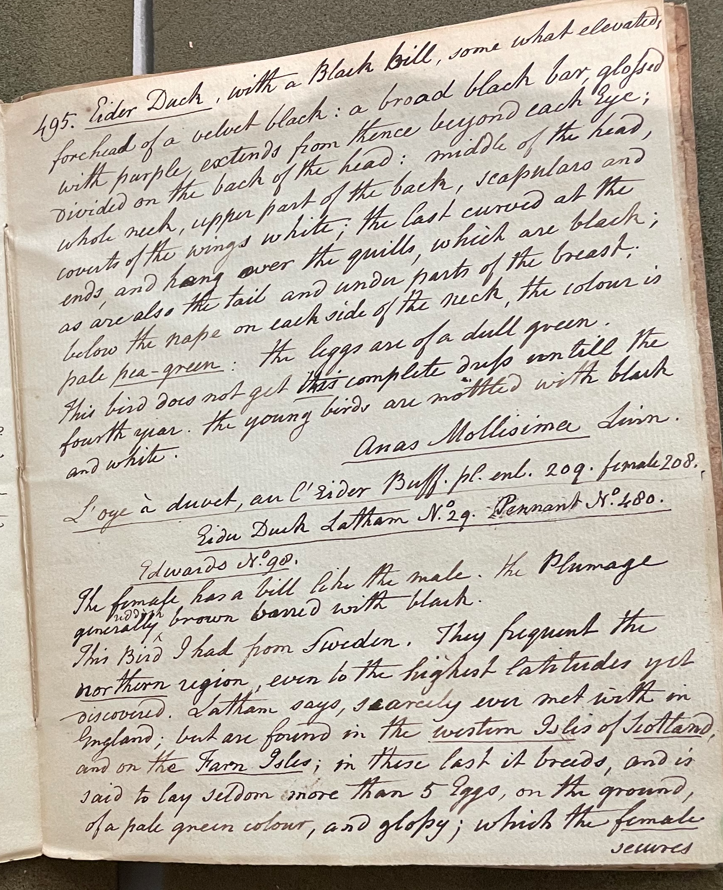 495. Eider Duck, with a Black bill, some what elevated,
forehead of a velvet black: a broad black bar, glossed
with purple, extends from thence beyond each Eye;
divided on the back of the head: middle of the head,
whole neck, upper part of the back, scapulars and
coverts of the wings white; the last curved at the
ends, and hang over the quills, which are black;
as are also the tail and under parts of the breast:
below the nape on each side of the neck, the colour is
pale pea-green: the leggs are of a dull green.
This bird does not get this complete dress untill the
fourth year. the young birds are mottled with black
and white.
Anas Mollisima Linn.
L'oye à duvet, au l'Eider Buff. pl. enl. 209. female 208.
Eidu Duck Latham No. 29. Pennant No. 480.
Edwards No. 98.
The female has a bill like the male. the Plumage
generally reddish brown barred with black.
This Bird I had from Sweden. They frequent the
northern region, even to the highest latitudes yet
discovered. Latham says, scarcely ever met with in
England; but are found in the western Isles of Scotland,
and on the Farn Isles; in these last it breeds, and is
said to lay seldom more than 5 Eggs, on the ground,
of a pale green colour, and glossy; which the female
secures